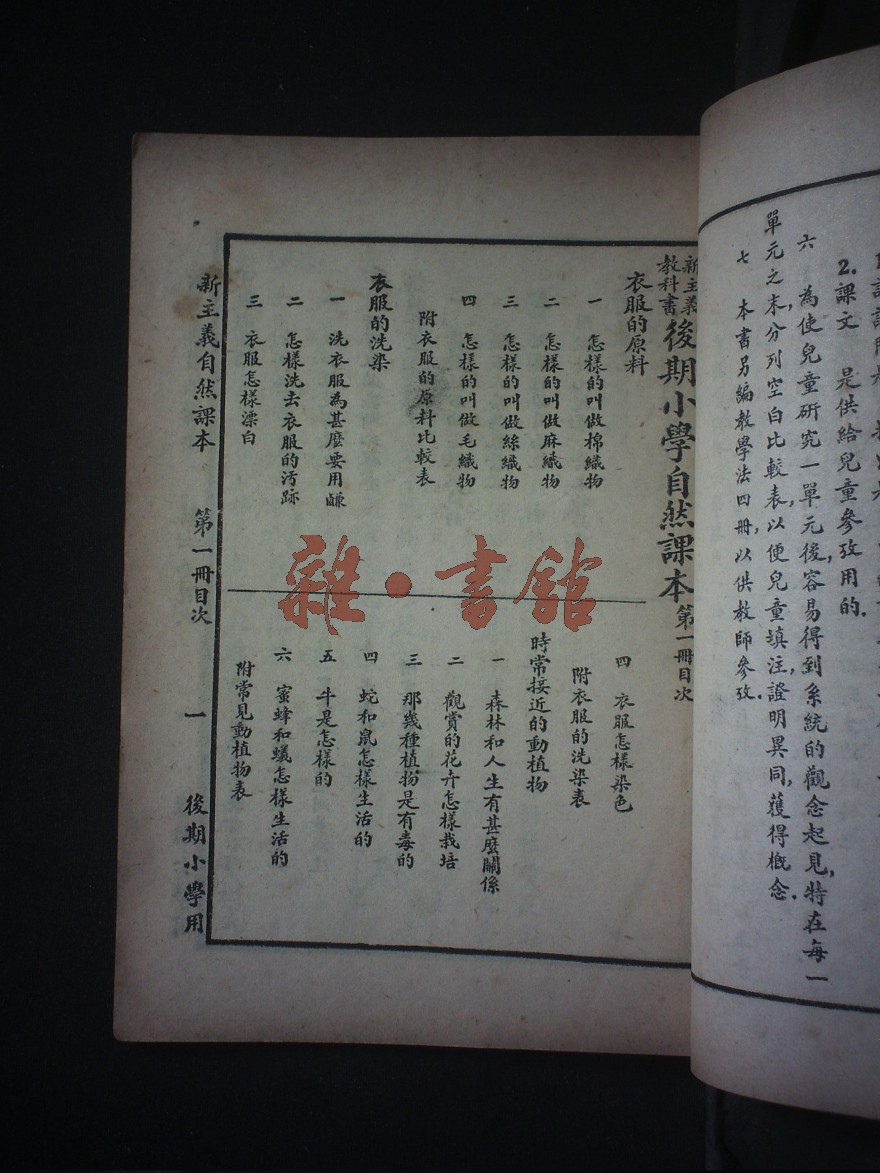 2. 課文　是供給兒童參攷用的.
六　為使兒童研究一單元後,容易得到系統的觀念起見,特在每一
單元之末,分列空白比較表,以便兒童填注,證明異同,獲得概念.
七　本書另編教學法四冊,以供教師參攷.
新主義
教科書
後期小學自然課本第一冊目次
衣服的原料
一　怎樣的叫做棉織物
二　怎樣的叫做麻織物
三　怎樣的叫做絲織物
四　怎樣的叫做毛織物
附衣服的原料比較表
衣服的洗染
一　洗衣服為甚麼要用鹻
二　怎樣洗去衣服的汚跡
三　衣服怎樣漂白
四　衣服怎樣染色
附衣服的洗染表
時常接近的動植物
一　森林和人生有甚麼關係
二　觀賞的花卉怎樣栽培
三　那幾種植物是有毒的
四　蛇和鼠怎樣生活的
五　牛是怎樣的
六　蜜蜂和蟻怎樣生活的
附常見動植物表
新主義自然課本　第一冊目次　一　後期小學用
雜·書館